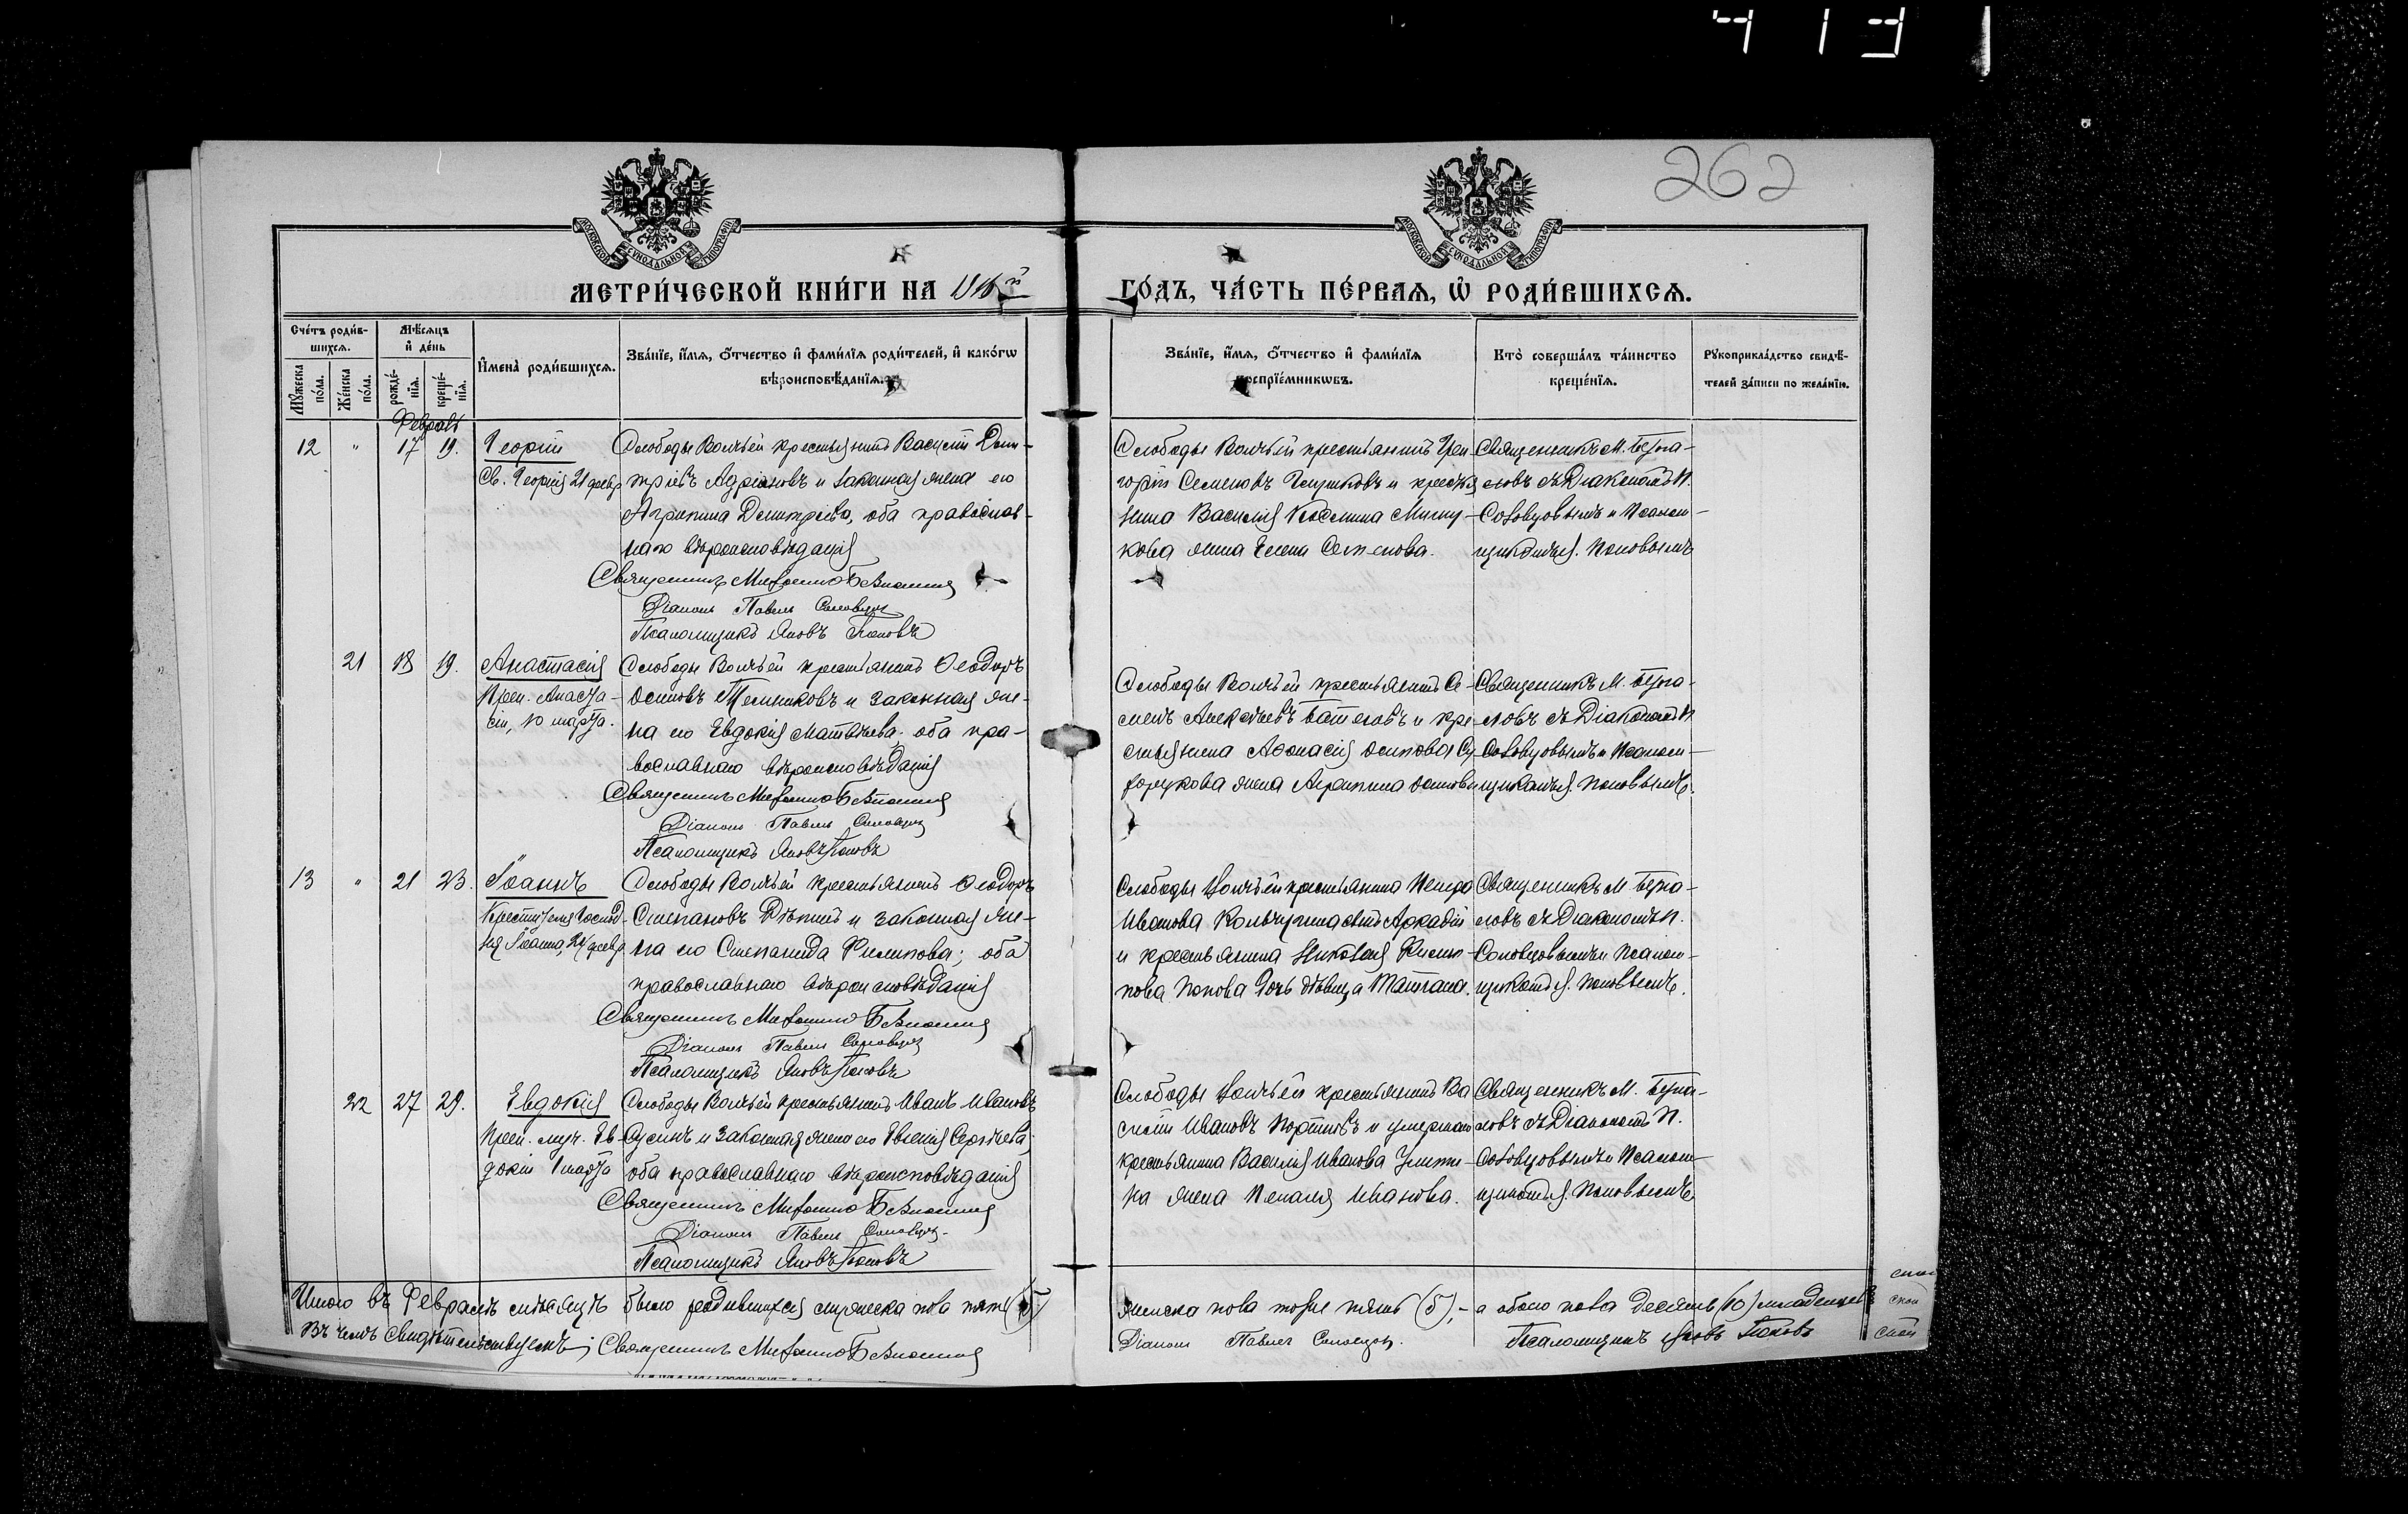 262
МОСКОВСКОЙ СѴНОДАЛЬНОЙ ТИПОГРАФІИ
МОСКОВСКОЙ СѴНОДАЛЬНОЙ ТИПОГРАФІИ
МЕТРИ́ЧЕСКОЙ КНИ́ГИ НА
ГО́ДЪ, ЧА́СТЬ ПЕ́РВАЯ, Ѡ҆ РОДИ́ВШИХСЯ.
Сче́тъ роди́в-
шихся.
Мꙋ́жеска по́ла.
Же́нска по́ла.
Мѣ́сяцъ
и҆ де́нь
рожде́-
нїя.
креще́-
нїя.
И҆мена̀ роди́вшихся.
Зва́нїе, и҆́мя, ѻ҆́тчество и҆ фами́лїя роди́телей, и҆ како́гѡ
вѣроисповѣ́данїя.
Зва́нїе, и҆́мя, ѻ҆́тчество и҆ фами́лїя
воспрїе́мникѡвъ.
Кто̀ соверша́лъ та́инство
креще́нїя.
Рꙋкоприкла́дство свидѣ́-
телей за́писи по жела́нїю.
Февраль
12 " 17 19. Георгій
Св. Георгія 21 февр
Слободы Волчьей крестьянинъ Василій Дими-
тріевъ Адріановъ и законная жена его
Агрипина Димитріева, оба православ-
наго вѣроисповѣданія
Священникъ Митрофанъ
Діаконъ Павелъ Соловцовъ
Псаломщикъ Яковъ Поповъ
Слободы Волчьей крестьянинъ Гри-
горій Семеновъ и крестья
нина Василія Космина
кова жена Елена Семенова.
Священникъ М.
ловъ съ Діакономъ П.
Соловцовымъ и Псалом-
щикомъ Я. Поповымъ
21 18 19. Анастасія
Преп. Анаста-
сіи, 10 марта.
Слободы Волчьей крестьянинъ Ѳеодоръ
Осиповъ и законная же-
на его Евдокія Матвѣева; оба пра-
вославнаго вѣроисповѣданія
Священникъ Митрофанъ
Діаконъ Павелъ Соловцовъ
Псаломщикъ Яковъ Поповъ
Слободы Волчьей крестьянинъ Се-
менъ Алексѣевъ и кре-
стьянина Аѳанасія Осипова
жена Агрипина Осипова
Священникъ М.
ловъ съ Діакономъ П.
Соловцовымъ и Псалом-
щикомъ Я. Поповымъ.
13 " 21 23. Іоаннъ
Крестителя Господ-
ня Іоанна, 24 февр
Слободы Волчьей крестьянинъ Ѳеодоръ
Степановъ и законная же-
на его Степанида Филипова; оба
православнаго вѣроисповѣданія
Священникъ Митрофанъ
Діаконъ Павелъ Соловцовъ
Псаломщикъ Яковъ Поповъ
Слободы Волчьей крестьянина Петра
Иванова Кольчугина сынъ Аркадій
и крестьянина Николая Филип-
пова Попова дочь дѣвица Татіана.
Священникъ М.
ловъ съ Діакономъ П.
Соловцовымъ и Псалом-
щикомъ Я. Поповымъ.
22 27 29. Евдокія
Преп. муч. Ев-
докіи 1 марта
Слободы Волчьей крестьянинъ Иванъ Ивановъ
и законная жена его Евгенія Сергѣева;
оба православнаго вѣроисповѣданія
Священникъ Митрофанъ
Діаконъ Павелъ Соловцовъ
Псаломщикъ Яковъ Поповъ
Слободы Волчьей крестьянинъ Ва
силій Ивановъ и умершаго
крестьянина Василія Иванова
на жена Пелагія Иванова.
Священникъ М.
ловъ съ Діакономъ П.
Соловцовымъ и Псалом-
щикомъ Я. Поповымъ
Итого въ Февралѣ мѣсяцѣ было родившихся мужеска пола пять (5)
женска пола тоже пять (5), - а обоего пола десять (10) младенцевъ
Въ чемъ свидѣтельствуемъ: Священникъ Митрофанъ
Діаконъ Павелъ Соловцовъ.
Псаломщикъ Яковъ Поповъ